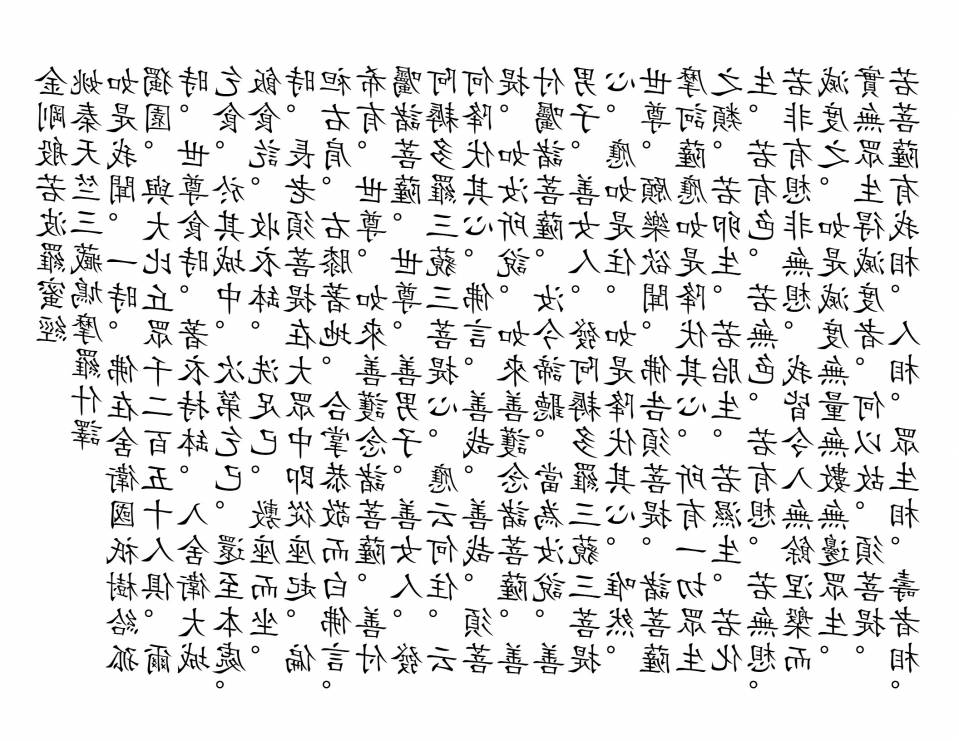 金剛般若波羅蜜經
姚秦天竺三藏鳩摩羅什譯
如是我聞。一時。佛在舍衛國祇樹給孤
獨園。與大比丘眾千二百五十人俱。爾
時。世尊食時。著衣持缽。入舍衛大城
乞食。於其城中。次第乞已。還至本處。
飯食訖。收衣缽。洗足已。敷座而坐。
時。長老須菩提在大眾中即從座起。偏
袒右肩。右膝著地。合掌恭敬而白佛言。
希有。世尊。如來善護念諸菩薩。善付
囑諸菩薩。世尊。善男子。善女人。發
阿耨多羅三藐三菩提心。應云何住。云
何降伏其心。佛言。善哉。善哉。須菩
提。如汝所說。如來善護念諸菩薩。善
付囑諸菩薩。汝今諦聽。當為汝說。善
男子。善女人。發阿耨多羅三藐三菩提
心。應如是住。如是降伏其心。唯然。
世尊。願樂欲聞。佛告須菩提。諸菩薩
摩訶薩應如是降伏其心。所有一切眾生
之類。若卵生。若胎生。若濕生。若化
生。若有色。若無色。若有想。若無想。
若非有想非無想。我皆令入無餘涅槃而
滅度之。如是滅度無量無數無邊眾生。
實無眾生得滅度者。何以故。須菩提。
若菩薩有我相。人相。眾生相。壽者相。